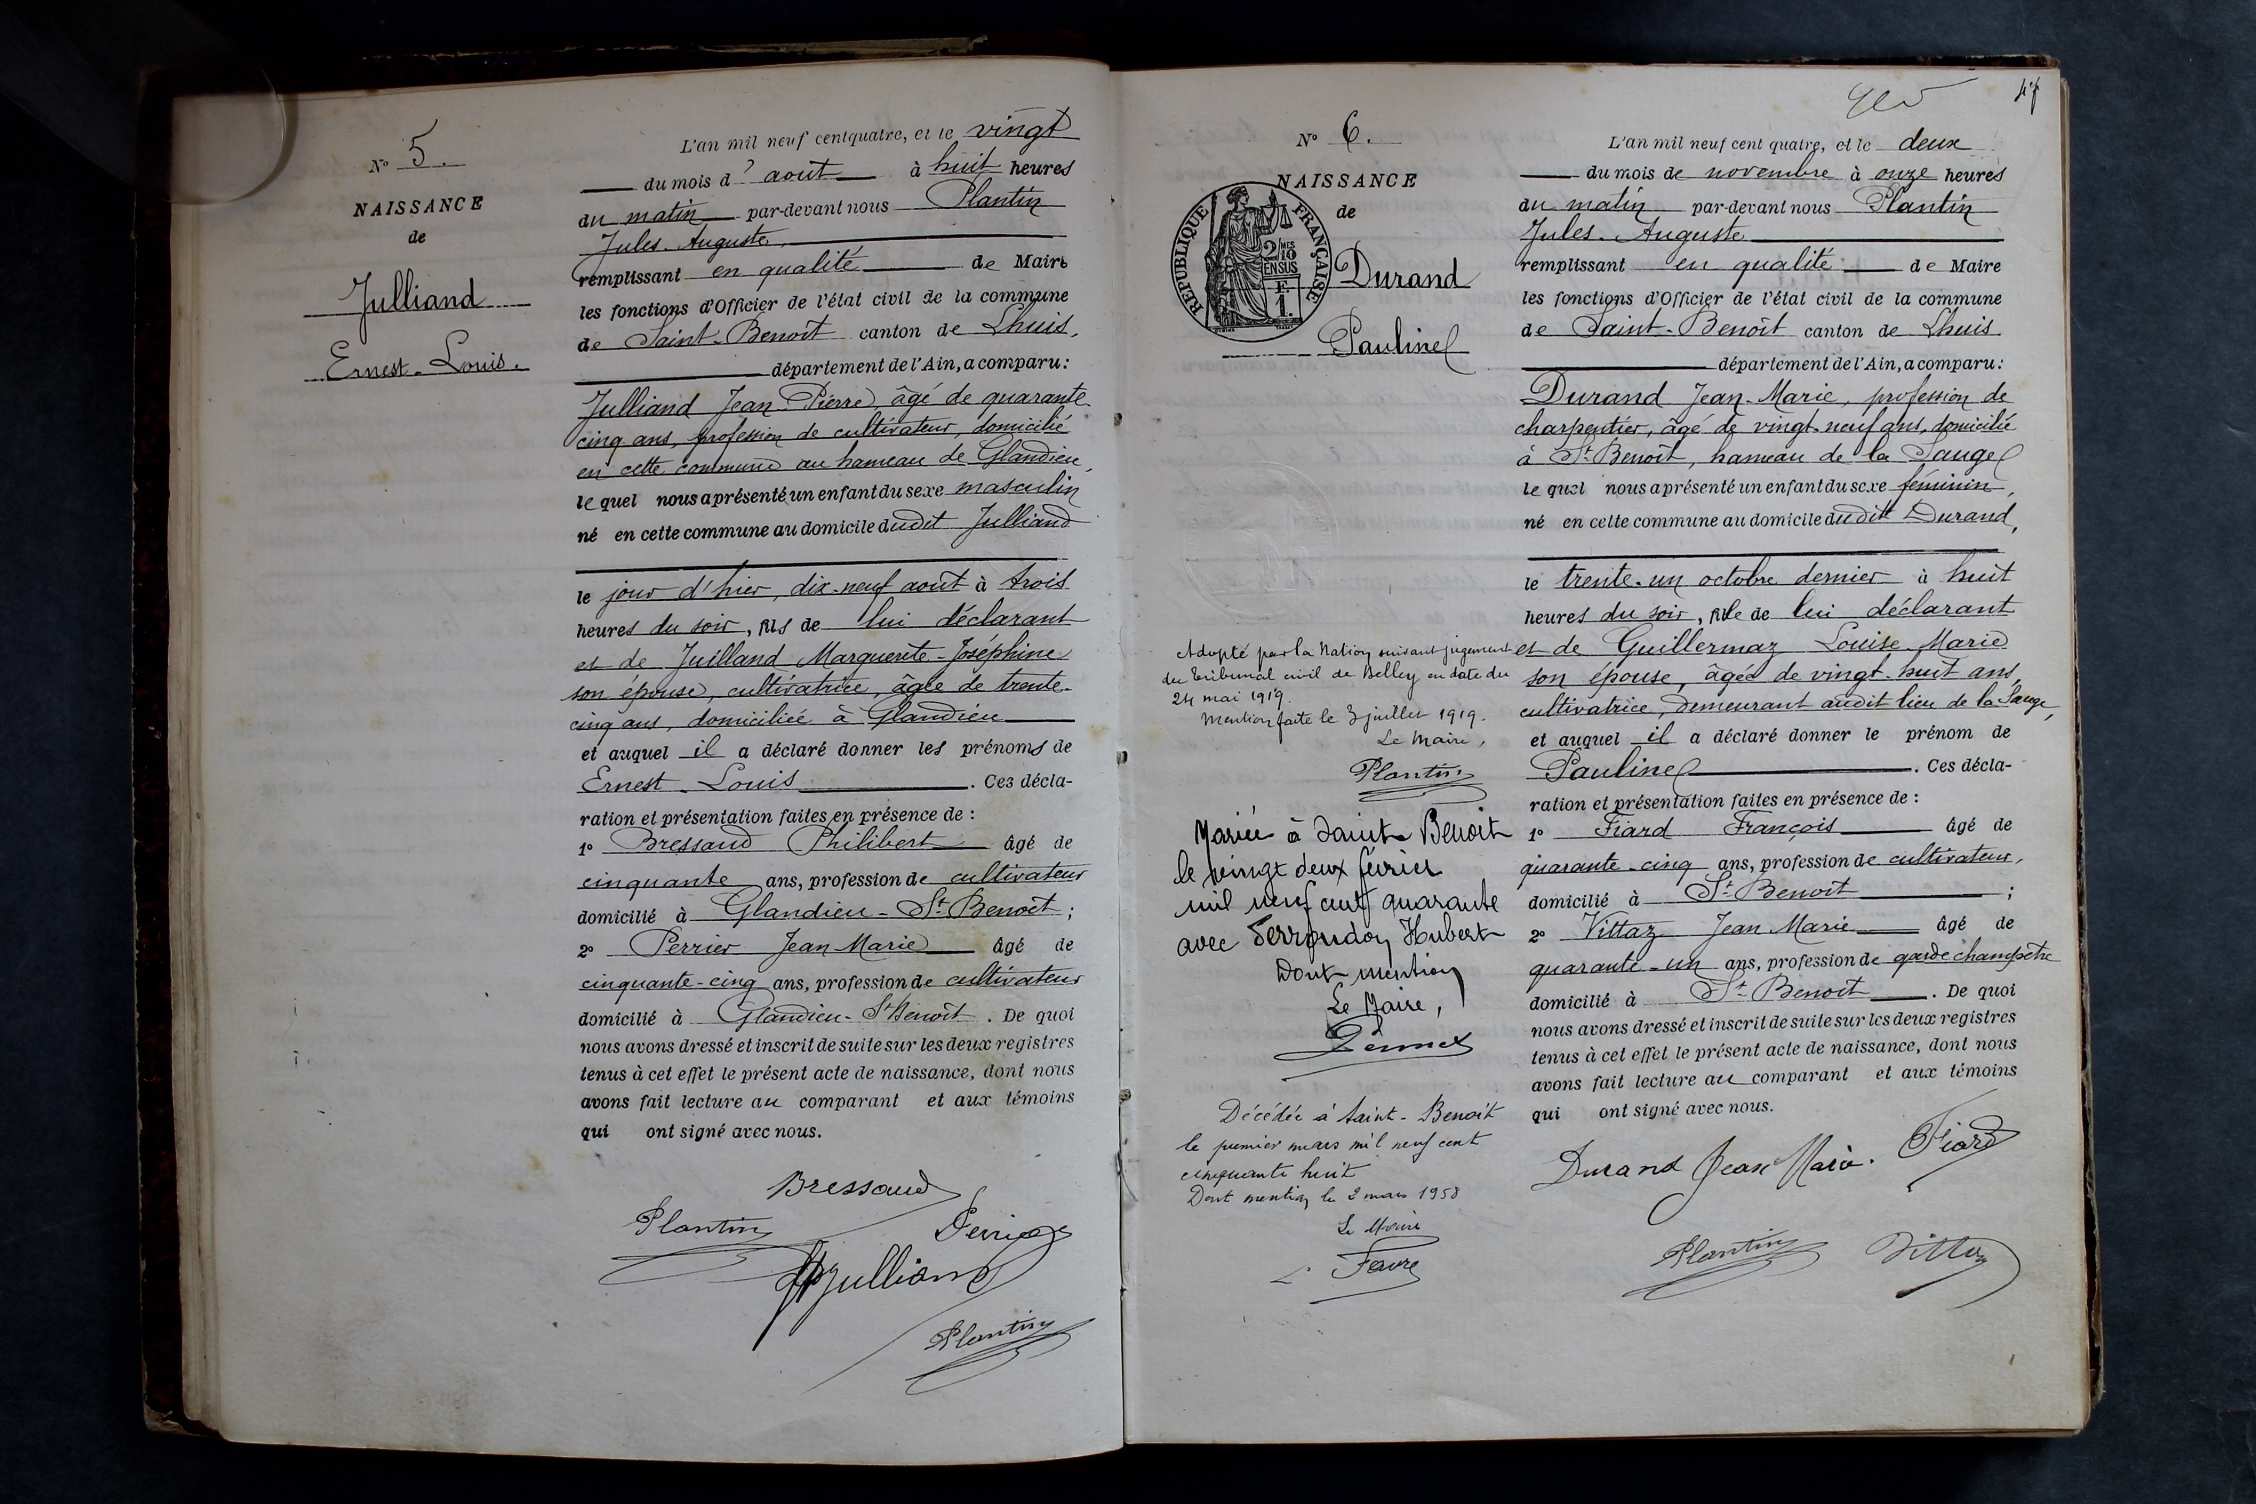 N° 5.
NAISSANCE
de
Julliand
Ernest-Louis.
L'an mil neuf cent quatre, et le vingt
du mois d'août à huit heures
du matin par-devant nous Plantin
Jules-Auguste,
remplissant en qualité de Maire
les fonctions d'Officier de l'état civil de la commune
de Saint-Benoît canton de Lhuis,
département de l'Ain, a comparu:
Julliand Jean-Pierre âgé de quarante-
cinq ans, profession de cultivateur, domicilié
en cette commune au hameau de Glandieu,
le quel nous a présenté un enfant du sexe masculin
né en cette commune au domicile dudit Julliand
le jour d'hier, dix-neuf août à trois
heures du soir, fils de lui déclarant
et de Juilland Marguerite-Joséphine
son épouse, cultivatrice, âgée de trente-
cinq ans, domiciliée à Glandieu
et auquel il a déclaré donner les prénoms de
Ernest-Louis. Ces décla-
ration et présentation faites en présence de:
1° Bressand Philibert âgé de
cinquante ans, profession de cultivateur
domicilié à Glandieu-St Benoît;
2° Perrier Jean-Marie âgé de
cinquante-cinq ans, profession de cultivateur
domicilié à Glandieu-St Benoît. De quoi
nous avons dressé et inscrit de suite sur les deux registres
tenus à cet effet le présent acte de naissance, dont nous
avons fait lecture au comparant et aux témoins
qui ont signé avec nous.
Bressand
Plantin Perrier
Julliand
Plantin
47
N° 6.
NAISSANCE
de
Durand
Pauline
RÉPUBLIQUE FRANÇAISE
2/10 MES
EN SUS
F.
1.
L'an mil neuf cent quatre, et le deux
du mois de novembre à onze heures
du matin par-devant nous Plantin
Jules-Auguste
remplissant en qualité de Maire
les fonctions d'Officier de l'état civil de la commune
de Saint-Benoît canton de Lhuis
département de l'Ain, a comparu:
Durand Jean-Marie, profession de
charpentier, âgé de vingt-neuf ans, domicilié
à St Benoît, hameau de la Sauge
le quel nous a présenté un enfant du sexe féminin,
né en cette commune au domicile dudit Durand,
le trente-un octobre dernier à huit
heures du soir, fille de lui déclarant
et de Guillermaz Louise-Marie
son épouse, âgée de vingt-huit ans,
cultivatrice, demeurant audit lieu de la Sauge,
et auquel il a déclaré donner le prénom de
Pauline. Ces décla-
ration et présentation faites en présence de:
1° Fiard François âgé de
quarante-cinq ans, profession de cultivateur,
domicilié à St Benoît;
2° Vittaz Jean-Marie âgé de
quarante-un ans, profession de garde champêtre
domicilié à St Benoît. De quoi
nous avons dressé et inscrit de suite sur les deux registres
tenus à cet effet le présent acte de naissance, dont nous
avons fait lecture au comparant et aux témoins
qui ont signé avec nous.
Durand Jean Marie. Fiard
Plantin Vittaz
Adopté par la Nation suivant jugement
du Tribunal civil de Belley en date du
24 mai 1919.
Mention faite le 3 juillet 1919.
Le Maire,
Plantin
Mariée à Saint Benoit
le vingt deux février
mil neuf cent quarante
avec Perroudon Hubert
Dont mention
Le Maire,
Décédée à Saint-Benoît
le premier mars mil neuf cent
cinquante huit
Dont mention le 2 mars 1958
Le Maire
Favre